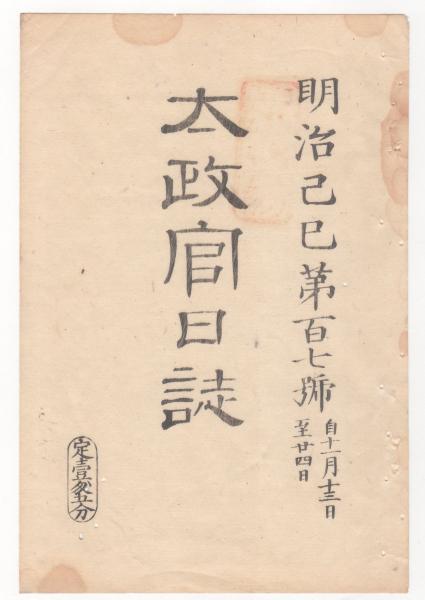 明治己巳第百七號
自十一月十三日
至廿四日
太政官日誌
定壹匁五分